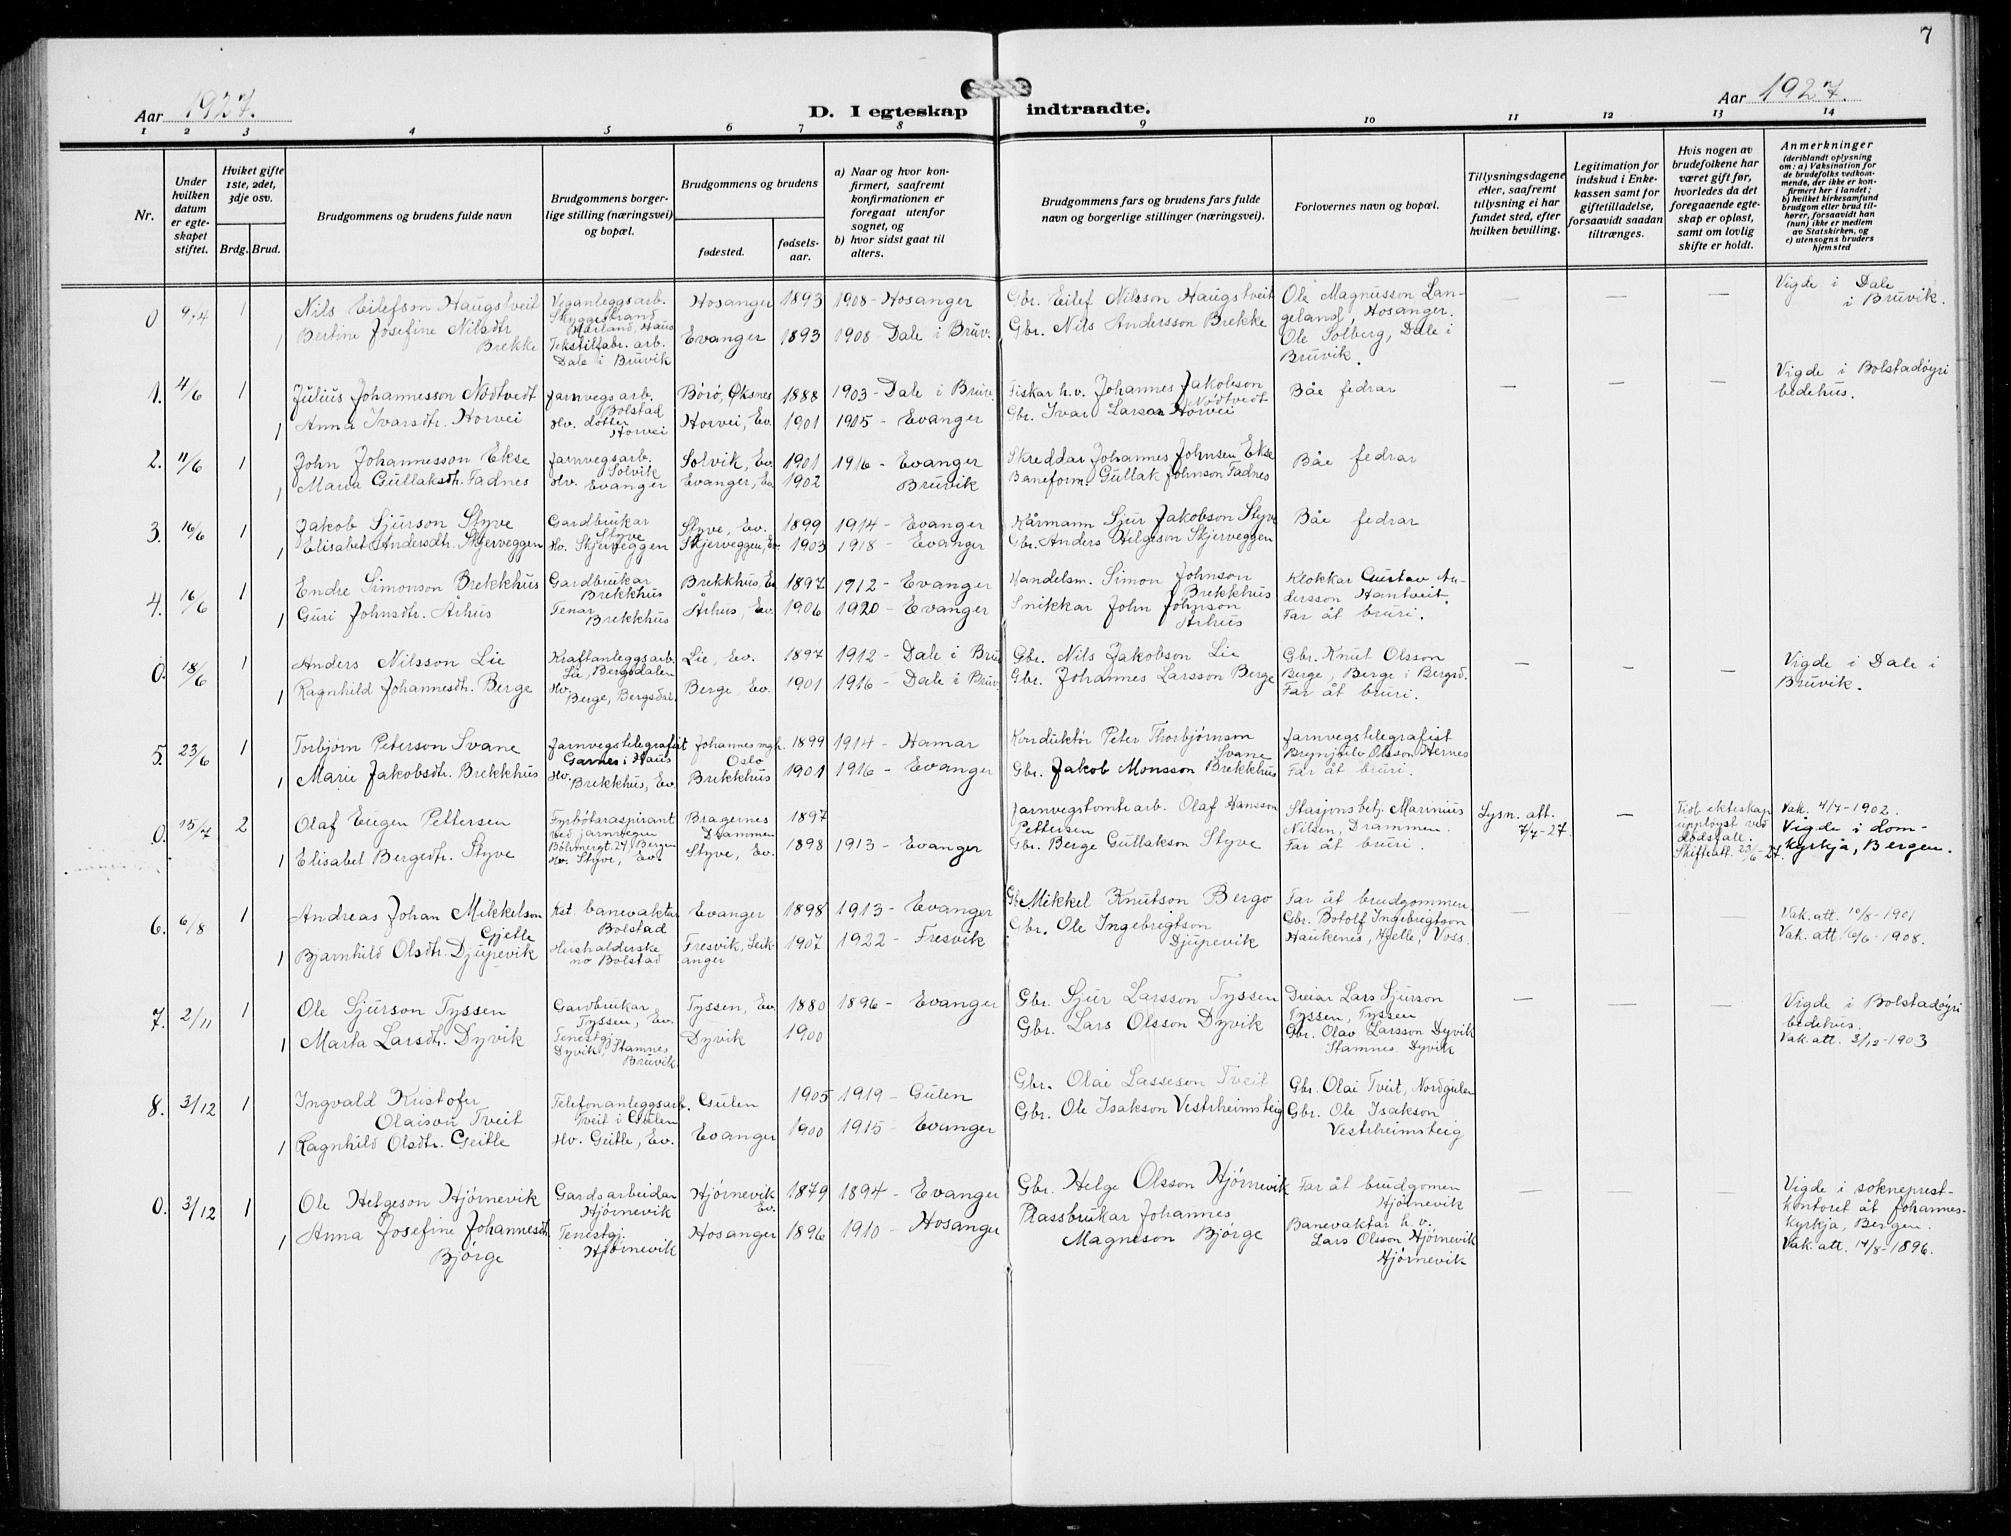 7
Aar 1927.
D. I egteskap indtraadte.
Aar 1927.
1 2 3 4 5 6 7 8 9 10 11 12 13 14
Nr.
Under hvilken datum er egteskapet stiftet.
Hviket gifte 1ste, 2det, 3dje osv.
Brdg. Brud.
Brudgommens og brudens fulde navn
Brudgommens borgerlige stilling (næringsvei) og bopæl.
Brudgommens og brudens
fødested.
fødselsaar.
a) Naar og hvor konfirmert, saafremt konfirmationen er foregaat utenfor sognet, og
b) hvor sidst gaat til alters.
Brudgommens fars og brudens fars fulde navn og borgerlige stillinger (næringsvei).
Forlovernes navn og bopæl.
Tillysningsdagene eller, saafremt tillysning ei har fundet sted, efter hvilken bevilling.
Legitimation for indskud i Enkekassen samt for giftetilladelse, forsaavidt saadan tiltrænges.
Hvis nogen av brudefolkene har været gift før, hvorledes da det foregaaende egteskap er opløst, samt om lovlig skifte er holdt.
Anmerkninger
(deriblandt oplysning om: a) Vaksination for de brudefolks vedkommende, der ikke er konfirmert her i landet; b) hvilket kirkesamfund brudgom eller brud tilhører, forsaavidt han (hun) ikke er medlem av Statskirken, og c) utensogns bruders hjemsted
0 9/4 1 Nils Eilefson Haugstveit Veganleggsarb. Skyggestrand Hærland, Haus Hosanger 1893 1908 - Hosanger Gbr. Eilef Nilsson Haugstveit Ole Magnusson Langeland, Hosanger. — — — Vigde i Dale i Bruvik.
1 Bertine Josefine Nilsdtr Brekke Tekstilfabr. arb. Dale i Bruvik Evanger 1893 1908 - Dale i Bruv. Gbr. Nils Andersson Brekke Ole Solberg, Dale i Bruvik.
1. 4/6 1 Julius Johannesson Nodtvedt Jarnvegsarb. Bolstad Børø, Øksnes 1888 1903 - Dale i Bruv. Fiskar h.v. Johannes Jakobson Nødtvedt Båe fedrar — — — Vigde i Bolstadøyri bedehus.
1 Anna Ivarsdtr. Horvei Hv. dotter Horvei Horvei, Ev. 1901 1915 - Evanger Gbr. Ivar Larson Horvei
2. 11/6 1 John Johannesson Ekse Jarnvegsarb. Solvik Solvik, Ev. 1901 1916 - Evanger Skreddar Johannes Johnsen Ekse Båe fedrar
1 Maria Gullaksdtr. Fadnes Hv. Evanger Evanger, Ev. 1902 Bruvik Baneform. Gullak Johnson Fadnes
3. 16/6 1 Jakob Sjurson Styve Gardbrukar Styve Styve, Ev. 1899 1914 - Evanger Kårmann Sjur Jakobson Styve Båe fedrar
1 Elisabet Andersdtr. Skjerveggen Hv. Skjerveggen Skjerveggen, Ev. 1903 1918 - Evanger Gbr. Anders Helgeson Skjerveggen
4. 16/6 1 Endre Simonson Brekkhus Gardbrukar Brekkhus Brekkhus, Ev 1897 1912 - Evanger Handelsm. Simon Johnson Brekkhus Klokkar Gustav Andersson Hantveit.
1 Guri Johnsdtr. Århus Tenar Brekkhus Århus, Ev. 1906 1920 - Evanger Snikkar John Johnson Århus Far åt bruri.
0. 18/6 1 Anders Nilsson Lie Kraftanleggsarb. Lie, Bergsdalen Lie, Ev. 1897 1912 - Dale i Bruv Gbr. Nils Jakobson Lie Gbr. Knut Olsson Berge, Berge i Bergsd. — — — Vigde i Dale i Bruvik.
1 Ragnhild Johannesdtr. Berge Hv. Berge, Bergsdal. Berge, Ev. 1901 1916 - Dale i Bruv. Gbr. Johannes Larsson Berge Far åt bruri.
5. 23/6 1 Torbjørn Peterson Svane Jarnvegstelegrafist Garnes i Haus Johannes mgh. Oslo 1899 1914 - Hamar Konduktør Peter Thorbjørnson Svane Jarnvegstelegrafist Brynjulv Olsson Hernes
1 Marie Jakobsdtr. Brekkhus Hv. Brekkhus, Ev. Brekkhus 1901 1916 - Evanger Gbr. Jakob Monsson Brekkhus Far åt bruri.
0. 15/7 2 Olaf Eugen Pettersen Fyrbøtaraspirant ved jarnvegen Bøhmergt. 27, Bergen Bragernes Drammen 1897 Jarnvegstomtearb. Olaf Hansson Pettersen Stasjonsbetj. Marinius Nilsen, Drammen. Lysn. att. 7/7-27. — Tidl. ekteskap upployst ved dødsfall. Skifteatt. 23/6-27. Vak. 4/7-1902. Vigde i domkyrkja, Bergen.
1 Elisabet Bergedtr. Styve Hv. Styve, Ev. Styve, Ev. 1898 1913 - Evanger Gbr. Berge Gullakson Styve Far åt bruri.
6. 6/8 1 Andreas Johan Mikkelson Gjelle Kst. banevaktar Bolstad Evanger 1898 1913 - Evanger Gbr. Mikkel Knutson Bergo Far åt brudgommen — — — Vak. att. 10/8-1901
1 Bjarnhild Olsdtr. Djupevik Hushalderske no Bolstad Fresvik, Leikanger 1907 1922 - Fresvik Gbr. Ole Ingebrigtson Djupevik Gbr. Botolf Ingebrigtson Haukenes, Hjelle, Voss. Vak. att. 16/6-1908.
7. 2/11 1 Ole Sjurson Tyssen Gardbrukar Tyssen, Ev. Tyssen, Ev. 1880 1896 - Evanger Gbr. Sjur Larsson Tyssen Dreiar Lars Sjurson Tyssen, Tyssen — — — Vigde i Bolstadøyri bedehus.
1 Marta Larsdtr. Dyvik Tenestgj. Dyvik, Stamnes Bruvik Dyvik 1900 Gbr. Lars Olsson Dyvik Gbr. Olav Larsson Dyvik Stamnes Dyvik Vak. att. 3/12-1903
8. 3/12 1 Ingvald Kristofer Olaison Tveit Telefonanleggsarb. Tveit i Gulen Gulen 1905 1919 - Gulen Gbr. Olai Lasseson Tveit Gbr. Olai Tveit, Nordgulen
1 Ragnhild Olsdtr. Geitle Hv. Geitle, Ev. Evanger 1900 1915 - Evanger Gbr. Ole Isakson Vestrheimsteig Gbr. Ole Isakson Vestrheimsteig
0. 3/12 1 Ole Helgeson Hjørnevik Gardsarbeidar Hjørnevik Hjørnevik Ev. 1879 1894 - Evanger Gbr. Helge Olsson Hjørnevik Far åt brudgomen Hjørnevik — — — Vigde i sokneprestkontoret åt Johanneskyrkja, Bergen.
1 Anna Josefine Johannesdt. Bjørge Tenestgj. Hjørnevik Hosanger 1896 1910 - Hosanger Plassbrukar Johannes Magneson Bjørge Banevaktar h.v. Lars Olsson Hjørnevik Hjørnevik Vak. att. 14/8-1896.